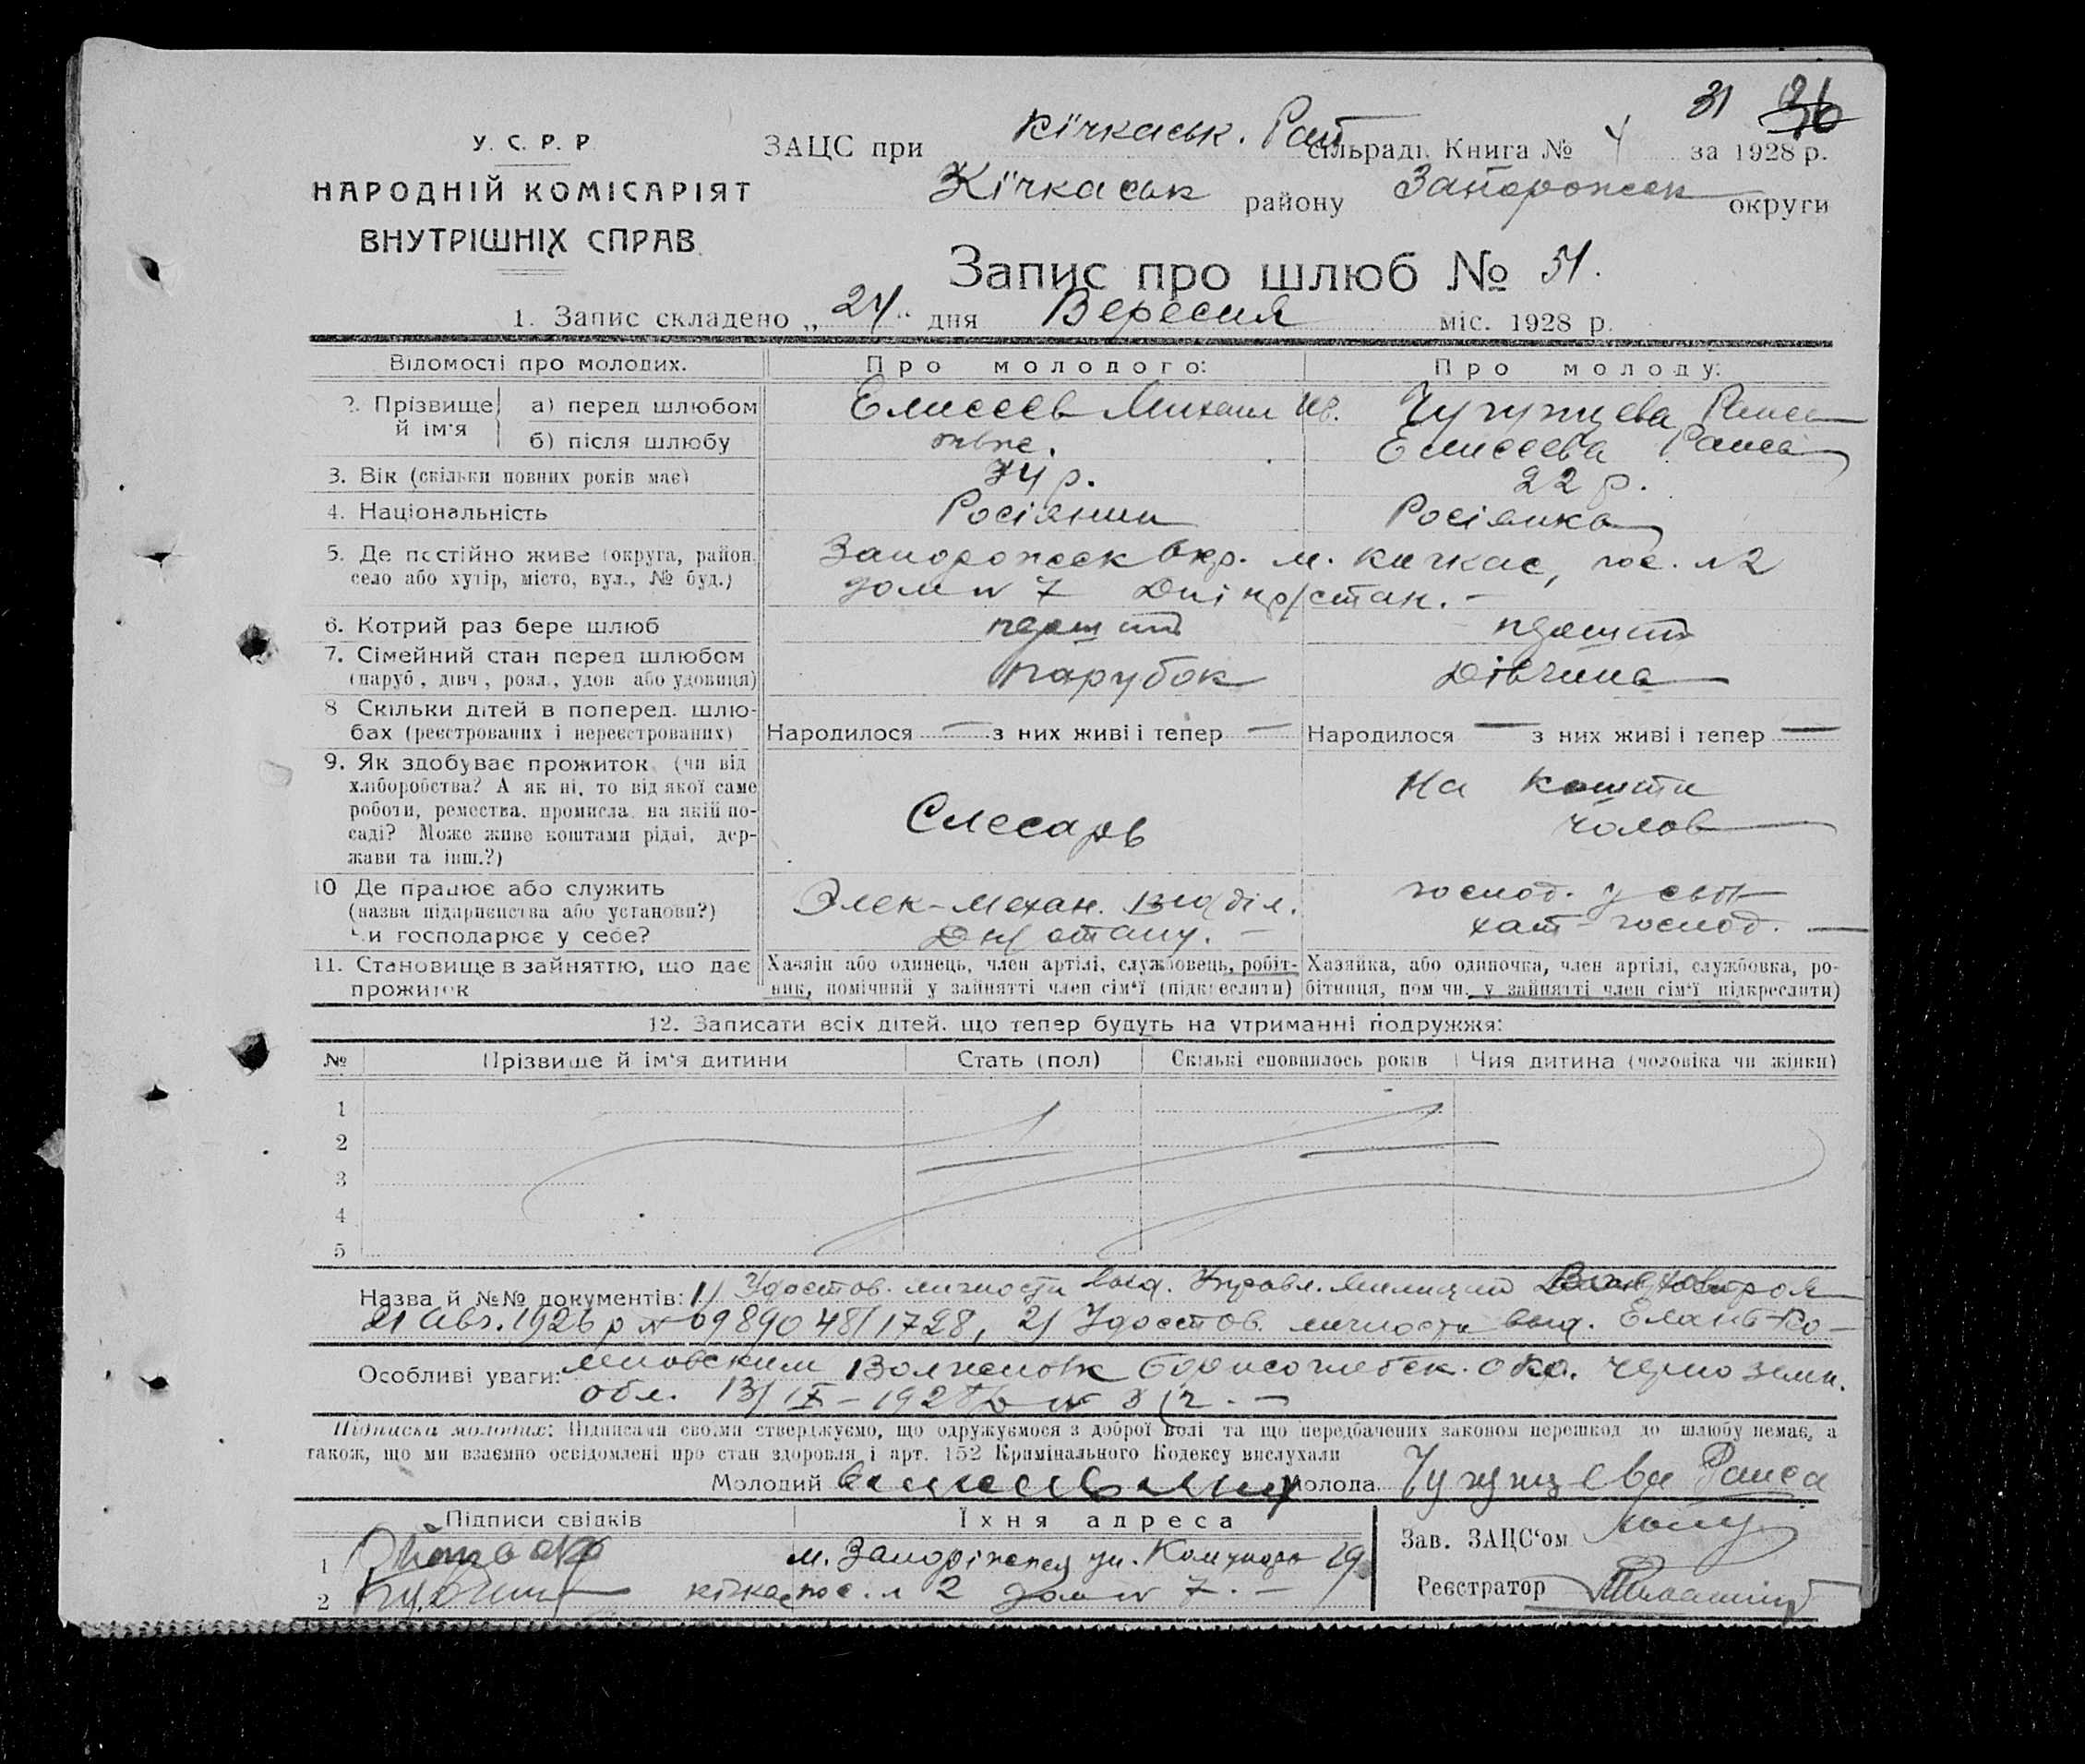 31 36
У. С. Р. Р.
НАРОДНІЙ КОМІСАРІЯТ
ВНУТРІШНІХ СПРАВ.
ЗАЦС при Кічкаськ. Рай сільраді. Книга № 4 за 1928 р.
Кічкаськ району Запорожск округи
Запис про шлюб № 51.
1. Запис складено „24" дня Вересня міс. 1928 р.
Відомості про молодих. Про молодого: Про молоду:
2. Прізвище й ім'я а) перед шлюбом Елисеев Михаил Ив. Раиса
б) після шлюбу теж. Елисеева Раиса
3. Вік (скільки повних років має) 22 р.
4. Національність Росіянин Росіянка
5. Де постійно живе (округа, район, Запорожск окр. м. Кичкас, пос. №2
село або хутір, місто, вул., № буд.) дом № 7 Дніпр/стан. –
6. Котрий раз бере шлюб перший перший
7. Сімейний стан перед шлюбом
(паруб., дівч., розл., удов. або удовиця) парубок Дівчина
8 Скільки дітей в поперед. шлю-
бах (реєстрованих і нереєстрованих) Народилося — з них живі і тепер — Народилося — з них живі і тепер —
9. Як здобуває прожиток (чи від
хліборобства? А як ні, то від якої саме
роботи, ремества, промисла, на якій по-
саді? Може живе коштами рідні, дер-
жави та інш.?) Слесарь На кошти
чолов
10 Де працює або служить Элек-механ. відділ. господ. у свої
(назва підприємства або установи?) Дн/стану. – хат-господ. —
Чи господарює у себе?
11. Становище в зайняттю, що дає Хазяїн або одинець, член артілі, службовець, робіт- Хазяйка, або одиночка, член артілі, службовка, ро-
прожиток ник, помічний у зайнятті член сім'ї (підкреслити) бітниця, пом чн. у зайнятті член сім'ї підкреслити)
12. Записати всіх дітей, що тепер будуть на утриманні подружжя:
№ Прізвище й ім'я дитини Стать (пол) Скількі сповнилось років Чия дитина (чоловіка чи жінки)
1
2
3
4
5
Назва й №№ документів: 1) Удостов. личности выд. Управл. милиции
21 Авг. 1926 р № 2) Удостов. личности выд. Елань-Ко-
Особливі уваги: леновским Борисоглебск. окр. чернозем.
обл. 13/IX–1928 р №
Підписка молодих: Підписами своїми стверджуємо, що одружуємося з доброї волі та що передбачених законом перешкод до шлюбу немає, а
також, що ми взаємно освідомлені про стан здоровля і арт. 152 Кримінального Кодексу вислухали
Молодий Молода Раиса
Підписи свідків Їхня адреса Зав. ЗАЦС'ом
1 м. Запоріжжя ул. 19
2 кічкас пос. № 2 дом № 7. – Реєстратор